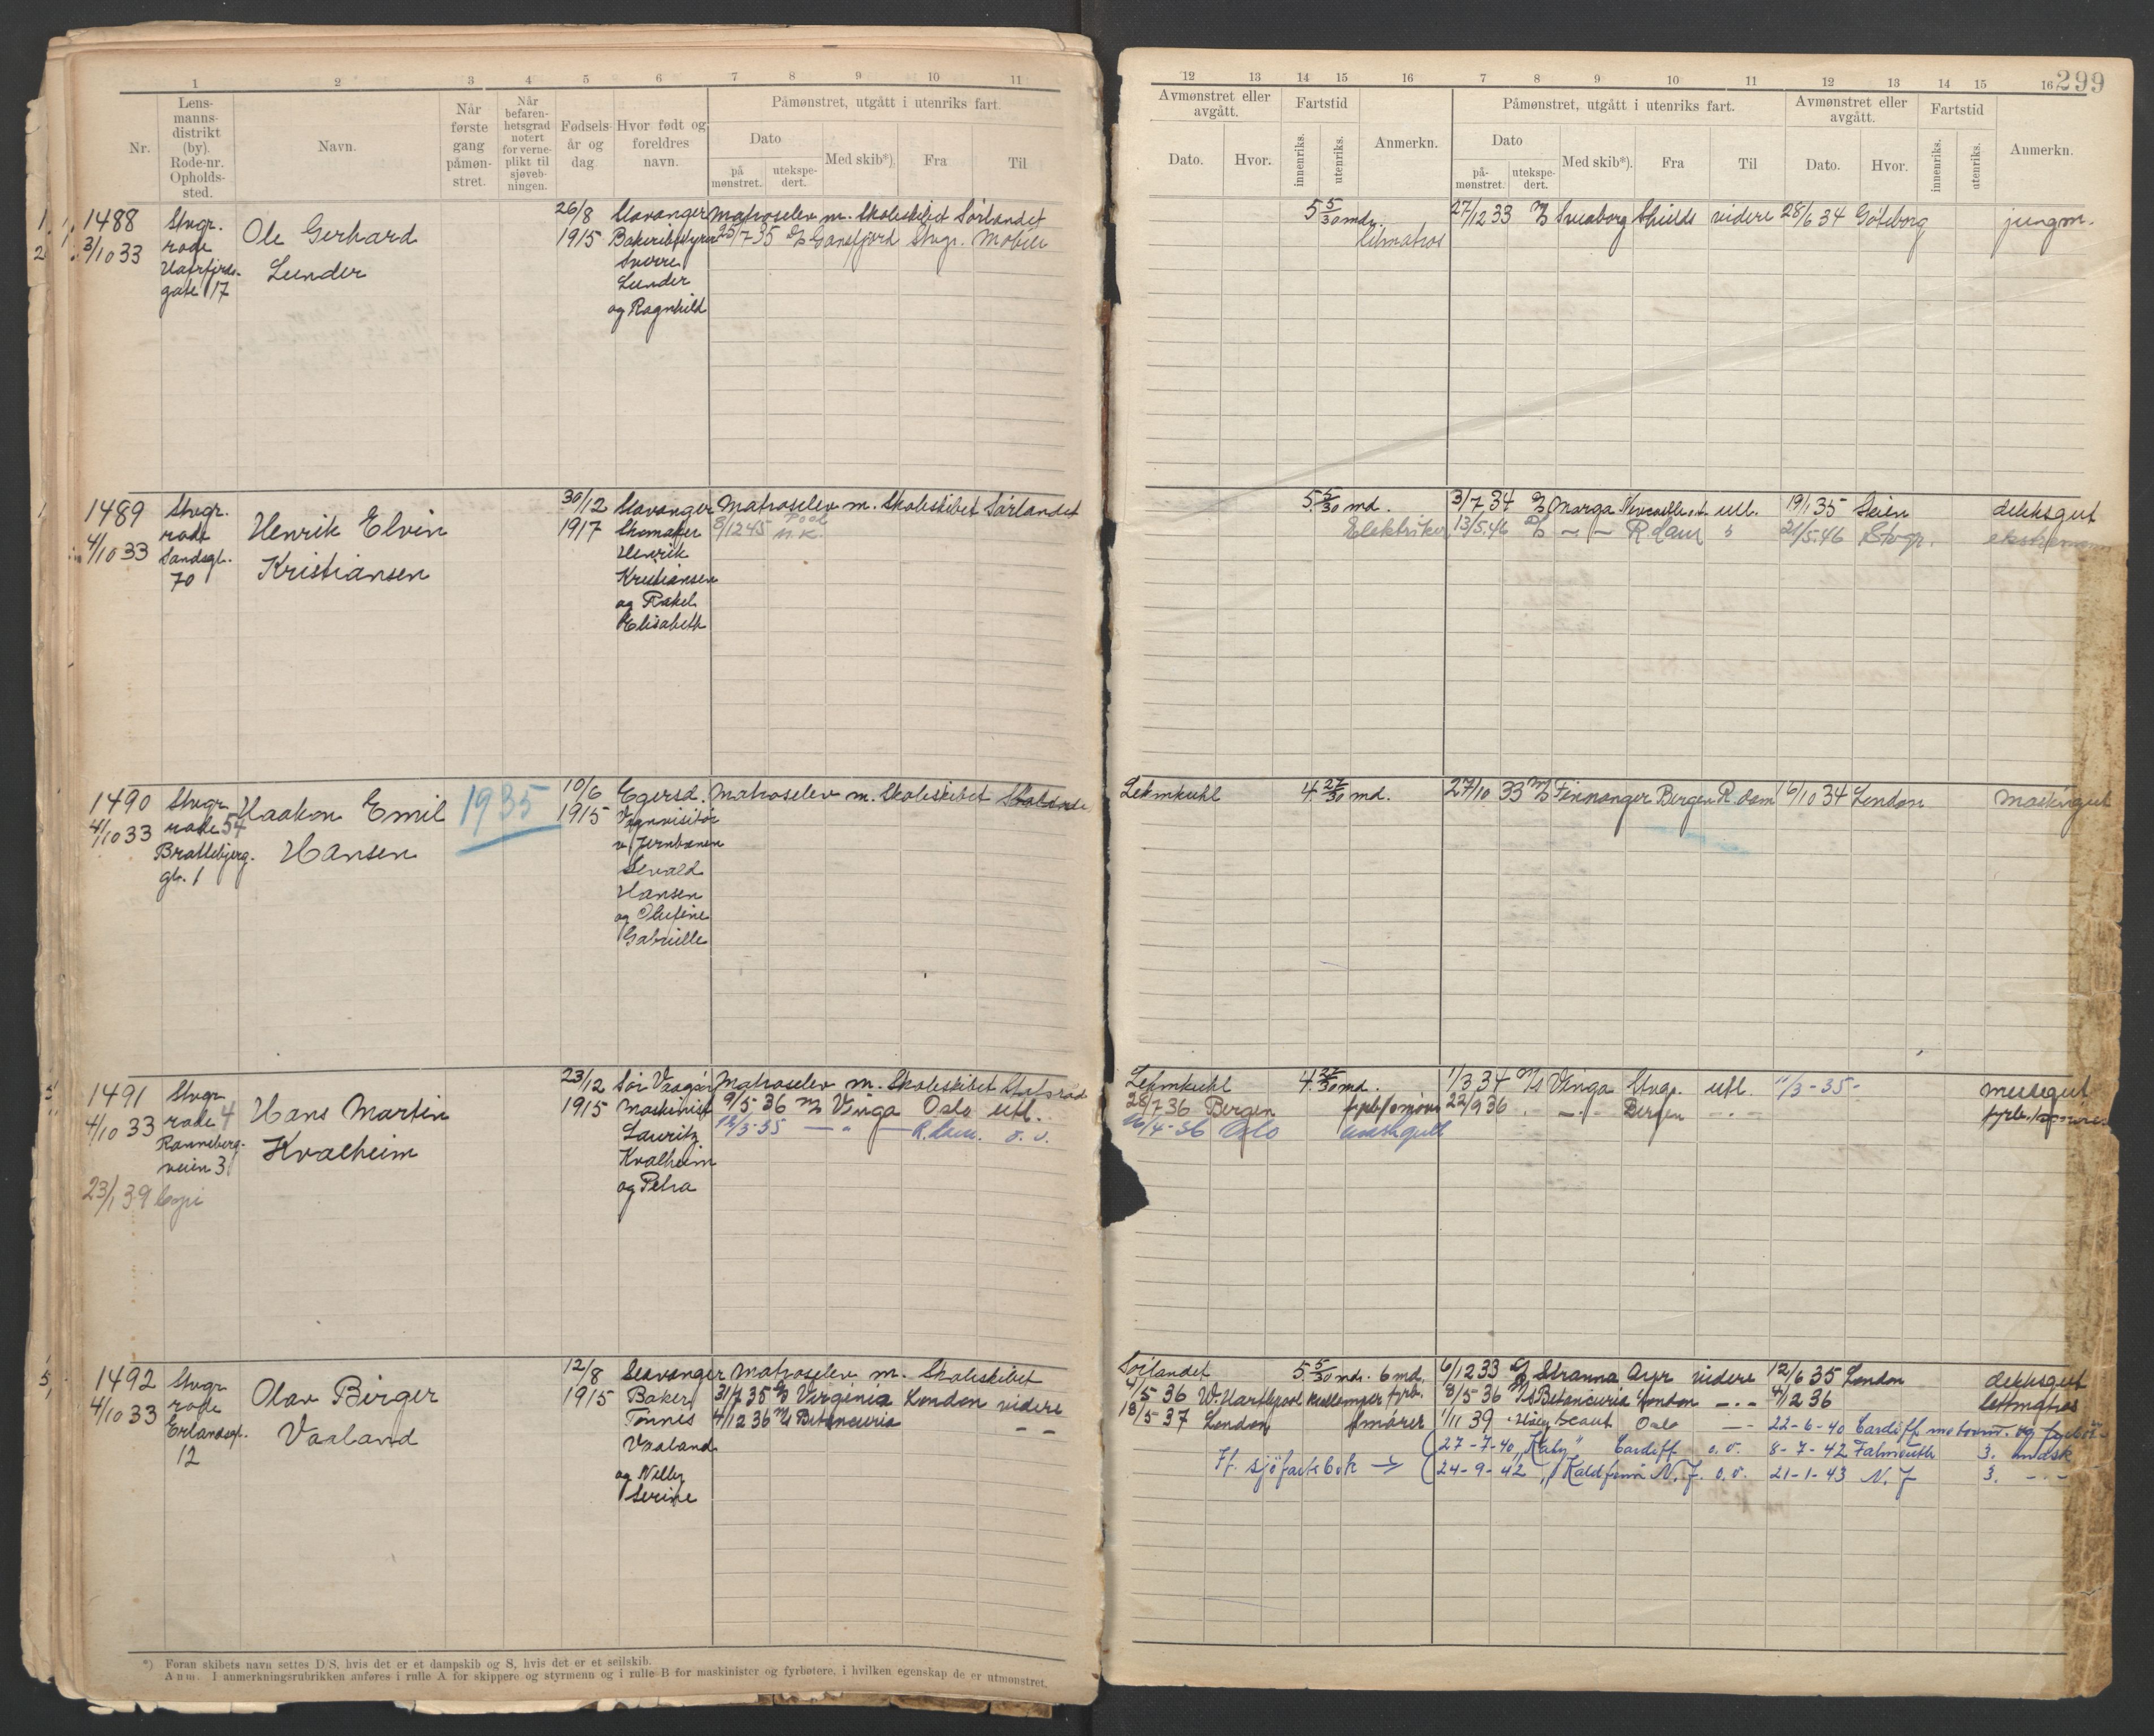 1 2 3 4 5 6 7 8 9 10 11
Nr.
Lens-
manns-
distrikt
(by).
Rode-nr.
Opholds-
sted.
Navn.
Når
første
gang
påmøn-
stret.
Når
befaren-
hetsgrad
notert
for verne-
plikt til
sjøveb-
ningen.
Fødsels-
år og
dag
Hvor født og
foreldres
navn.
Påmønstret, utgått i utenriks fart.
Dato
på
mønstret.
utekspe-
dert.
Med skib*)
Fra
Til
1488 Stvgr. Ole Gerhard 26/8 Stavanger Matroselev m. Skoleskibet Sörlandet
3/10 33 rode Lunder 1915 Bakeribestyrer 25/7 35 Gansfjord Stvgr. Mobile
gate 17
Sverre
Lunder
og Ragnhild
1489 Stvgr. Henrik Elvin 30/12 Stavanger Matroselev m. Skoleskibet Sörlandet
4/10 33 rode Kristiansen 1917 Skomaker 8/12 45 Pool
Sandsgt.
70
Henrik
Kristiansen
og Rakel
Elisabeth
1490 Stvgr. Haakon Emil 1935 10/6 Egersd. Matroselev m. Skoleskibet Statsraad
4/10 33 rode 54 Hansen 1915 Vognvisitör
Brattebjerg-
gt. 1
v/Jernbanen
Sevald
Hansen
og Olufine
Gabrielle
1491 Stvgr. Hans Martin 23/12 Sör Vaagöy Matroselev m. Skoleskibet Statsraad
4/10 33 rode 4 Kvalheim 1915 Maskinist 9/5 36 M/S Vinga Oslo utl.
Ranneberg-
veien 3
12/3-35 — " — R.dam. o. v.
Lauritz
Kvalheim
og Petra
23/1 39 kopi
1492 Stvgr. Olav Birger 12/8 Stavanger Matroselev m. Skoleskibet
4/10 33 rode Vaaland 1915 Baker 31/7 35 Virginia London videre
Erlandsgt.
12
Tönnis 4/12 36 M/S Betancuria — —
Vaaland
og Nelly
Serine
*) Foran skibets navn settes D/S, hvis det er et dampskib og S, hvis det er et seilskib.
Anm. I anmerkningsrubrikken anføres i rulle A for skippere og styrmenn og i rulle B for maskinister og fyrbøtere, i hvilken egenskap de er utmønstret.
299
12 13 14 15 16 7 8 9 10 11 12 13 14 15 16
Avmønstret eller
avgått.
Dato.
Hvor.
Fartstid
innenriks.
utenriks.
Anmerkn.
Påmønstret, utgått i utenriks fart.
Dato
på-
mønstret.
utekspe-
dert.
Med skib*).
Fra
Til
Avmønstret eller
avgått.
Dato.
Hvor.
Fartstid
innenriks.
utenriks.
Anmerkn.
5 5/30 md. 27/12 33 M/S Sveaborg Shields videre 28/6 34 Göteborg jungm.
letmatros
5 5/30 md. 3/7 34 Marga Newcastle utl. 19/1 35 dekksgut
Elektriker 13/5.46 — — R.dam 21/5-46 Stvgr.
Lehmkuhl 4 27/30 md. 27/10 33 M/S Finnanger Bergen R.dam 6/10 34 London maskingut
Lehmkuhl 4 27/30 md. 1/3 34 M/S Vinga Stvgr. utl. 11/3-35- messegut
28/7 36 Bergen 22/9 36 — " — Bergen — " —
16/4-36 Oslo maskgutt
Sörlandet 5 5/30 md. 6 md. 6/12 33 Stranna Ayr videre 12/6 35 London dekksgut
4/5 36 W. Hartlepool kullemper fyrb. 8/5 36 M/S Betancuria London — " — 4/12 36 lettmatros
18/5 37 London smörer 1/11 39 Höegh Scout Oslo — 22-6-40 Cardiff
27-7-40 „Katy" Cardiff o.v. 8-7-42 Falmouth 3. mask
Ff. sjöfartsbok → 24-9-42 „Kaldfonn N.J. o.v. 21-1-43 N.J 3. - " -